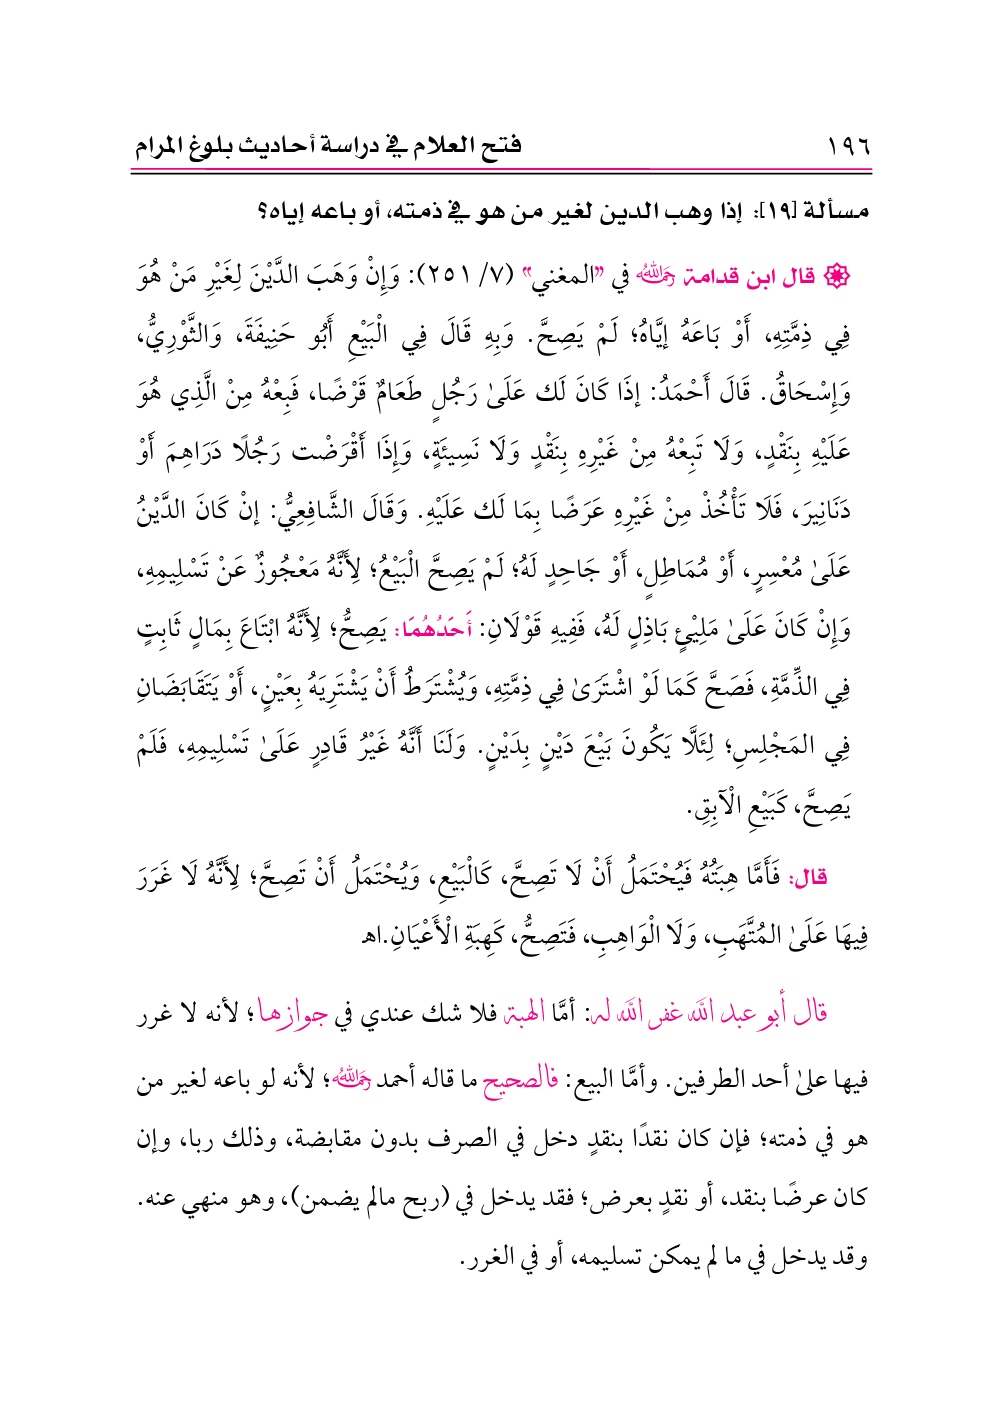 ١٩٦ فتح العلام في دراسة أحاديث بلوغ المرام
مسألة [١٩]: إذا وهب الدين لغير من هو في ذمته، أو باعه إياه؟
قال ابن قدامة رحمه الله في "المغني" (٧/ ٢٥١): وَإِنْ وَهَبَ الدَّيْنَ لِغَيْرِ مَنْ هُوَ
فِي ذِمَّتِهِ، أَوْ بَاعَهُ إيَّاهُ؛ لَمْ يَصِحَّ. وَبِهِ قَالَ فِي الْبَيْعِ أَبُو حَنِيفَةَ، وَالثَّوْرِيُّ،
وَإِسْحَاقُ. قَالَ أَحْمَدُ: إذَا كَانَ لَك عَلَىٰ رَجُلٍ طَعَامٌ قَرْضًا، فَبِعْهُ مِنْ الَّذِي هُوَ
عَلَيْهِ بِنَقْدٍ، وَلَا تَبِعْهُ مِنْ غَيْرِهِ بِنَقْدٍ وَلَا نَسِيئَةٍ، وَإِذَا أَقْرَضْت رَجُلًا دَرَاهِمَ أَوْ
دَنَانِيرَ، فَلَا تَأْخُذْ مِنْ غَيْرِهِ عَرَضًا بِمَا لَك عَلَيْهِ. وَقَالَ الشَّافِعِيُّ: إنْ كَانَ الدَّيْنُ
عَلَىٰ مُعْسِرٍ، أَوْ مُمَاطِلٍ، أَوْ جَاحِدٍ لَهُ؛ لَمْ يَصِحَّ الْبَيْعُ؛ لِأَنَّهُ مَعْجُوزٌ عَنْ تَسْلِيمِهِ،
وَإِنْ كَانَ عَلَىٰ مَلِيْئٍ بَاذِلٍ لَهُ، فَفِيهِ قَوْلَانِ: أَحَدُهُمَا: يَصِحُّ؛ لِأَنَّهُ ابْتَاعَ بِمَالٍ ثَابِتٍ
فِي الذِّمَّةِ، فَصَحَّ كَمَا لَوْ اشْتَرَىٰ فِي ذِمَّتِهِ، وَيُشْتَرَطُ أَنْ يَشْتَرِيَهُ بِعَيْنٍ، أَوْ يَتَقَابَضَانِ
فِي المَجْلِسِ؛ لِئَلَّا يَكُونَ بَيْعَ دَيْنٍ بِدَيْنٍ. وَلَنَا أَنَّهُ غَيْرُ قَادِرٍ عَلَىٰ تَسْلِيمِهِ، فَلَمْ
يَصِحَّ، كَبَيْعِ الْآبِقِ.
قال: فَأَمَّا هِبَتُهُ فَيُحْتَمَلُ أَنْ لَا تَصِحَّ، كَالْبَيْعِ، وَيُحْتَمَلُ أَنْ تَصِحَّ؛ لِأَنَّهُ لَا غَرَرَ
فِيهَا عَلَىٰ المُتَّهَبِ، وَلَا الْوَاهِبِ، فَتَصِحُّ، كَهِبَةِ الْأَعْيَانِ.اهـ
قال أبو عبد الله غفر الله له: أمَّا الهبة فلا شك عندي في جوازها؛ لأنه لا غرر
فيها علىٰ أحد الطرفين. وأمَّا البيع: فالصحيح ما قاله أحمد رحمه الله؛ لأنه لو باعه لغير من
هو في ذمته؛ فإن كان نقدًا بنقدٍ دخل في الصرف بدون مقابضة، وذلك ربا، وإن
كان عرضًا بنقد، أو نقدٍ بعرض؛ فقد يدخل في (ربح مالم يضمن)، وهو منهي عنه.
وقد يدخل في ما لم يمكن تسليمه، أو في الغرر.